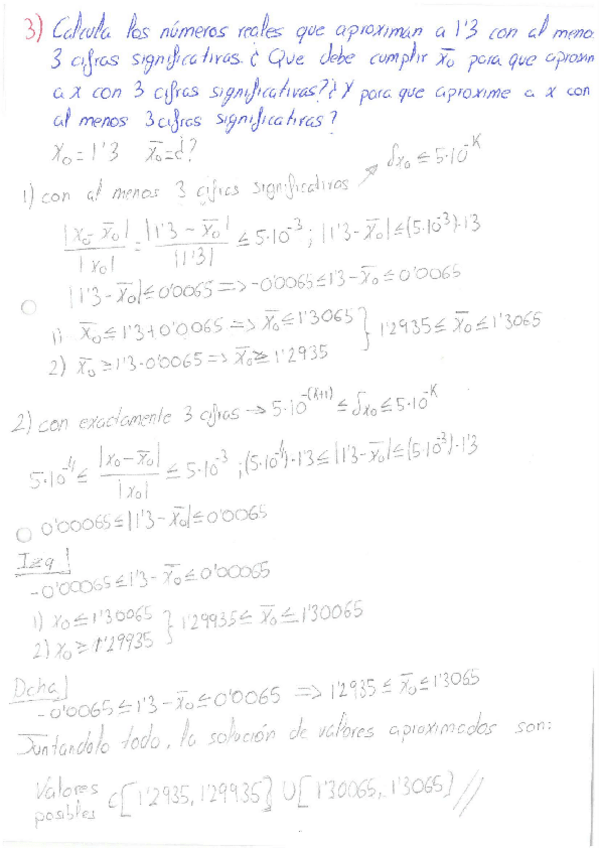 3) Calcula los números reales que aproximan a 1'3 con al meno
3 cifras significativas. ¿ Que debe cumplir x̄₀ para que aproxim
a x con 3 cifras significativas? ¿ Y para que aproxime a x con
al menos 3 cifras significativas?
x₀ = 1'3 x̄₀ = ¿?
1) con al menos 3 cifras significativas → δx₀ ≤ 5·10^-K
|x₀ - x̄₀| / |x₀| = |1'3 - x̄₀| / |1'3| ≤ 5·10^-3 ; |1'3 - x̄₀| ≤ (5·10^-3)·1'3
|1'3 - x̄₀| ≤ 0'0065 => -0'0065 ≤ 1'3 - x̄₀ ≤ 0'0065
1) x̄₀ ≤ 1'3 + 0'0065 => x̄₀ ≤ 1'3065 } 1'2935 ≤ x̄₀ ≤ 1'3065
2) x̄₀ ≥ 1'3 - 0'0065 => x̄₀ ≥ 1'2935
2) con exactamente 3 cifras → 5·10^-(K+1) ≤ δx₀ ≤ 5·10^-K
5·10^-4 ≤ |x₀ - x̄₀| / |x₀| ≤ 5·10^-3 ; (5·10^-4)·1'3 ≤ |1'3 - x̄₀| ≤ (5·10^-3)·1'3
0'00065 ≤ |1'3 - x̄₀| ≤ 0'0065
Izq
-0'00065 ≤ 1'3 - x̄₀ ≤ 0'00065
1) x₀ ≤ 1'30065 } 1'29935 ≤ x̄₀ ≤ 1'30065
2) x₀ ≥ 1'29935
Dcha
-0'0065 ≤ 1'3 - x̄₀ ≤ 0'0065 => 1'2935 ≤ x̄₀ ≤ 1'3065
Juntandolo todo, la solución de valores aproximados son:
Valores posibles c[1'2935, 1'29935] U [1'30065, 1'3065] //